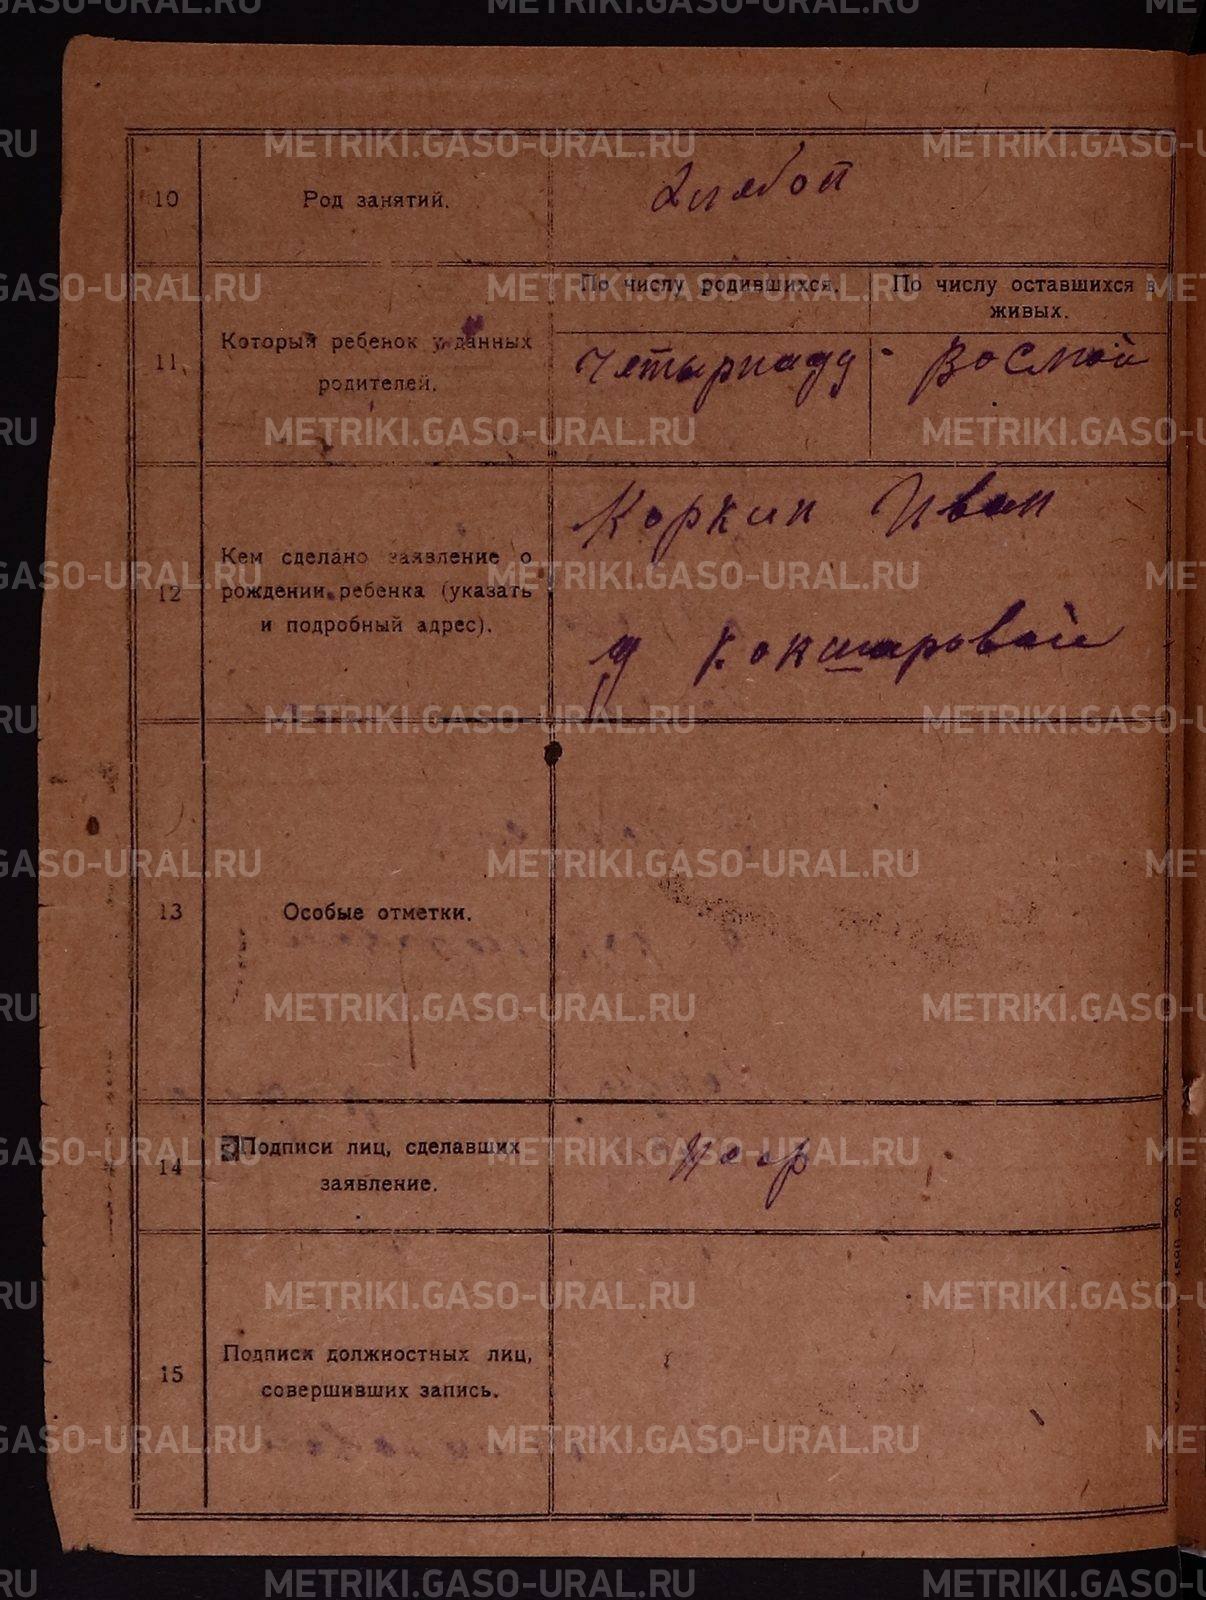 10
Род занятий.
11
Который ребенок у данных
родителей.
По числу родившихся.
По числу оставшихся в
живых.
Восмой
12
Кем сделано заявление о
рождении ребенка (указать
и подробный адрес).
Коркин Иван
д Кокшаровой
13
Особые отметки.
14
Подписи лиц, сделавших
заявление.
15
Подписи должностных лиц,
совершивших запись.
METRIKI.GASO-URAL.RU